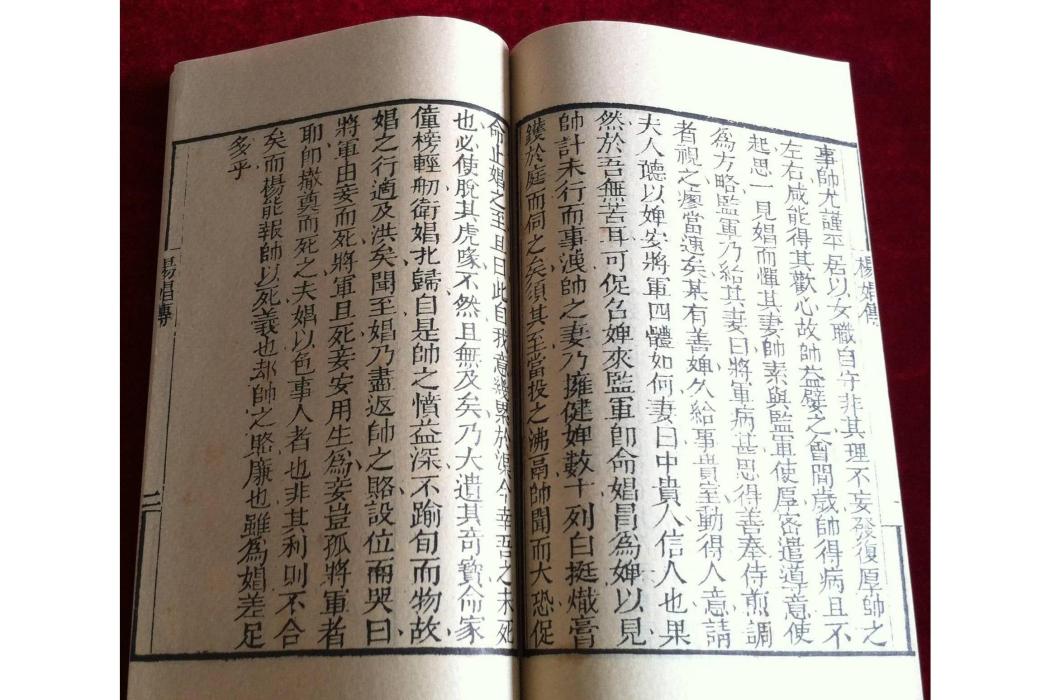 事帥尤謹平居以女職自守非其理不妄發復厚帥之
左右咸能得其歡心故帥益嬖之會間歲帥得病且不
起思一見娼而憚其妻帥素與監軍使厚密遣導意使
為方略監軍乃給其妻曰將軍病甚思得善奉侍煎調
者視之瘳當速矣某有善婢久給事貴室動得人意請
夫人聽以婢安將軍四體如何妻曰中貴人信人也果
然於吾無苦耳可促召婢來監軍即命娼冒為婢以見
帥計未行而事洩帥之妻乃擁健婢數十列白挺熾膏
鑊於庭而伺之矣須其至當投之沸鬲帥聞而大恐促
命止娼之至且曰此自我意幾累於渠今幸吾之未死
也必使脫其虎喙不然且無及矣乃大遺其奇寶命家
僮榜輕舠衛娼北歸自是帥之憤益深不踰旬而物故
娼之行適及洪矣聞至娼乃盡返帥之賂設位而哭曰
將軍由妾而死將軍且死妾安用生為妾豈孤將軍者
耶即撤奠而死之夫娼以色事人者也非其利則不合
矣而楊能報帥以死義也却帥之賂廉也雖為娼差足
多乎
楊娼傳
一
楊娼傳
二